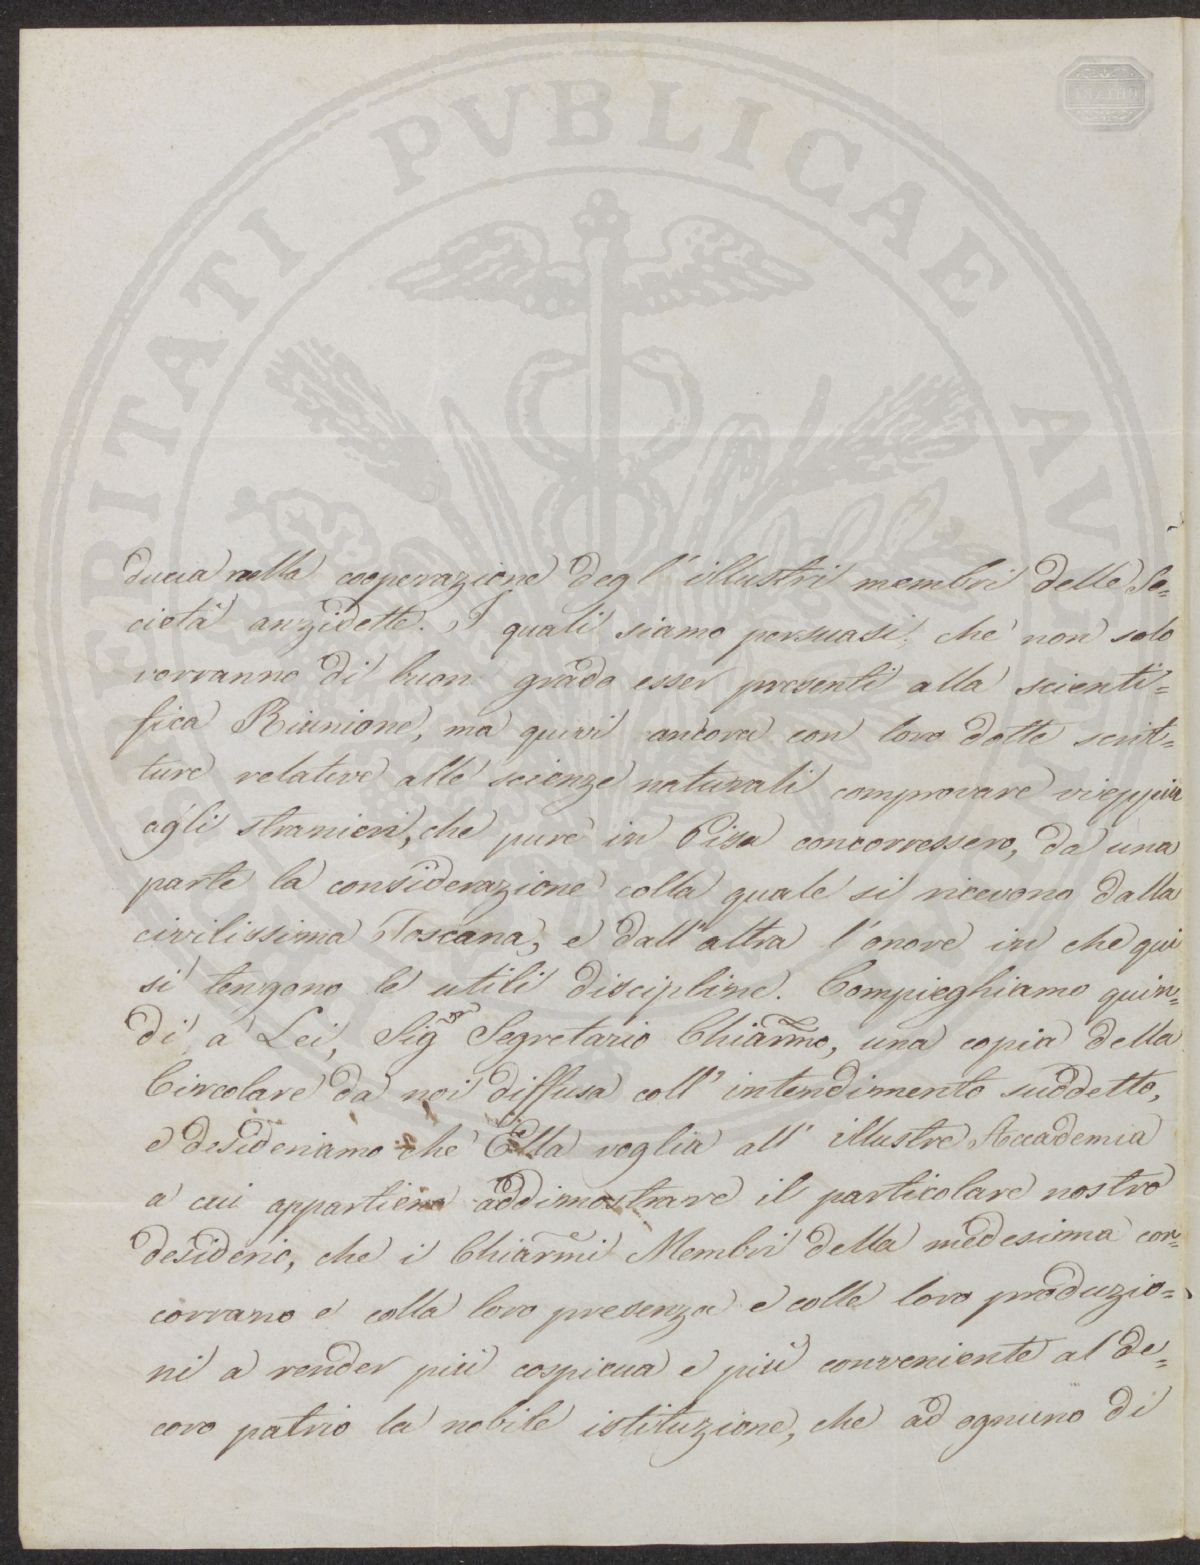 PROSPERITATI PVBLICAE AV
CHIARI
ducia nella cooperazione degl' illustri membri delle So=
cietà anzidette. I quali siamo persuasi, che non solo
vorranno di buon grado esser presenti alla scienti=
fica Riunione, ma quivi ancora con loro dotte scrit=
ture relative alle scienze naturali comprovare vieppiù
agli stranieri, che pure in Pisa concorressero, da una
parte la considerazione colla quale si ricevono dalla
civilissima Toscana, e dall' altra l' onore in che qui
si tengono le utili discipline. Compieghiamo quin=
di a Lei, Sigr Segretario Chiarmo, una copia della
Circolare da noi diffusa coll' intendimento suddetto,
e desideriamo che Ella voglia all' illustre Accademia
a cui appartiene addimostrare il particolare nostro
desiderio, che i Chiarmi Membri della medesima con=
corrano e colla loro presenza e colle loro produzio=
ni a render più cospicua e più conveniente al de=
coro patrio la nobile istituzione, che ad ognuno di